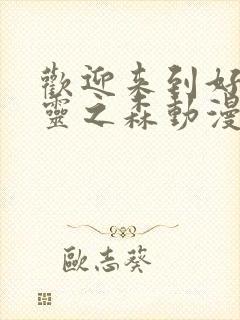 歡迎来到好
靈之森動漫
歐志葵